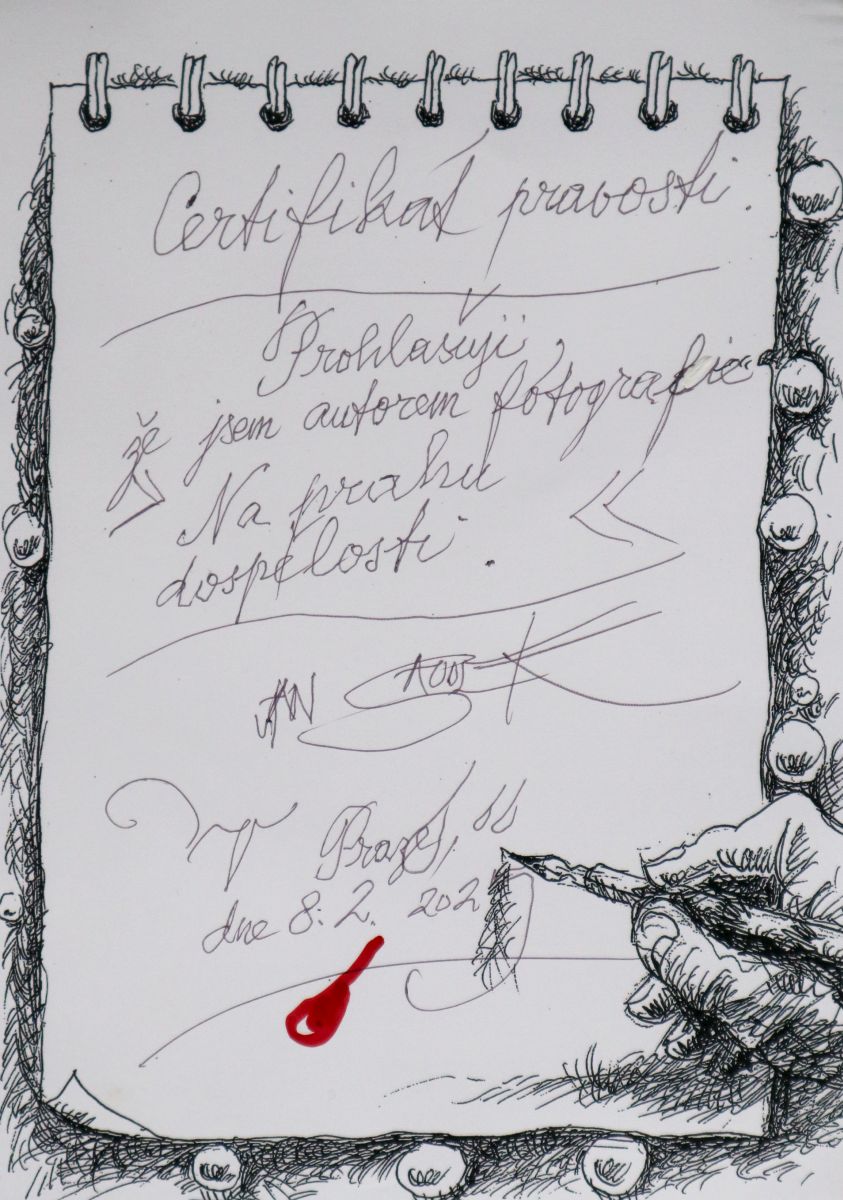 Certifikát pravosti.
Prohlašuji,
že jsem autorem fotografie
> Na prahu <
dospělosti.
JAN SAUDEK
V Praze,
dne 8. 2.